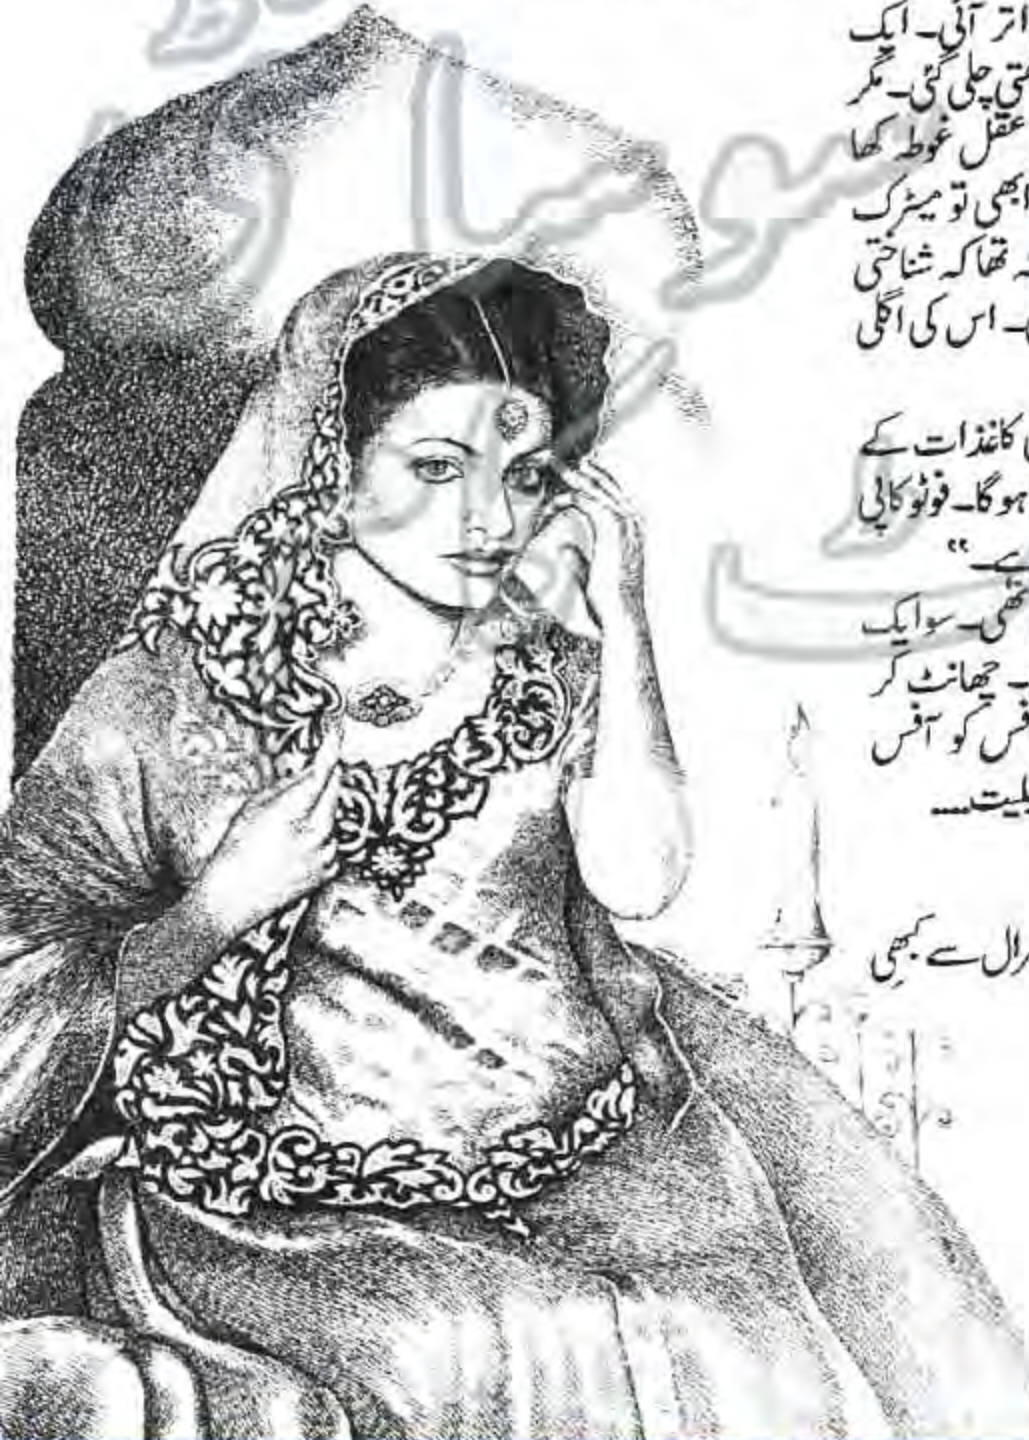 اتر آئی۔ ایک
چلی گئی۔ مگر
عقل غوطہ کھا
ابھی تو میٹرک
تھا کہ شناختی
اس کی اگلی
کاغذات کے
ہوگا۔ فوٹو کاپی
ہے۔"
تھی۔ سو ایک
۔ چھانٹ کر
کو آفس
سے کبھی